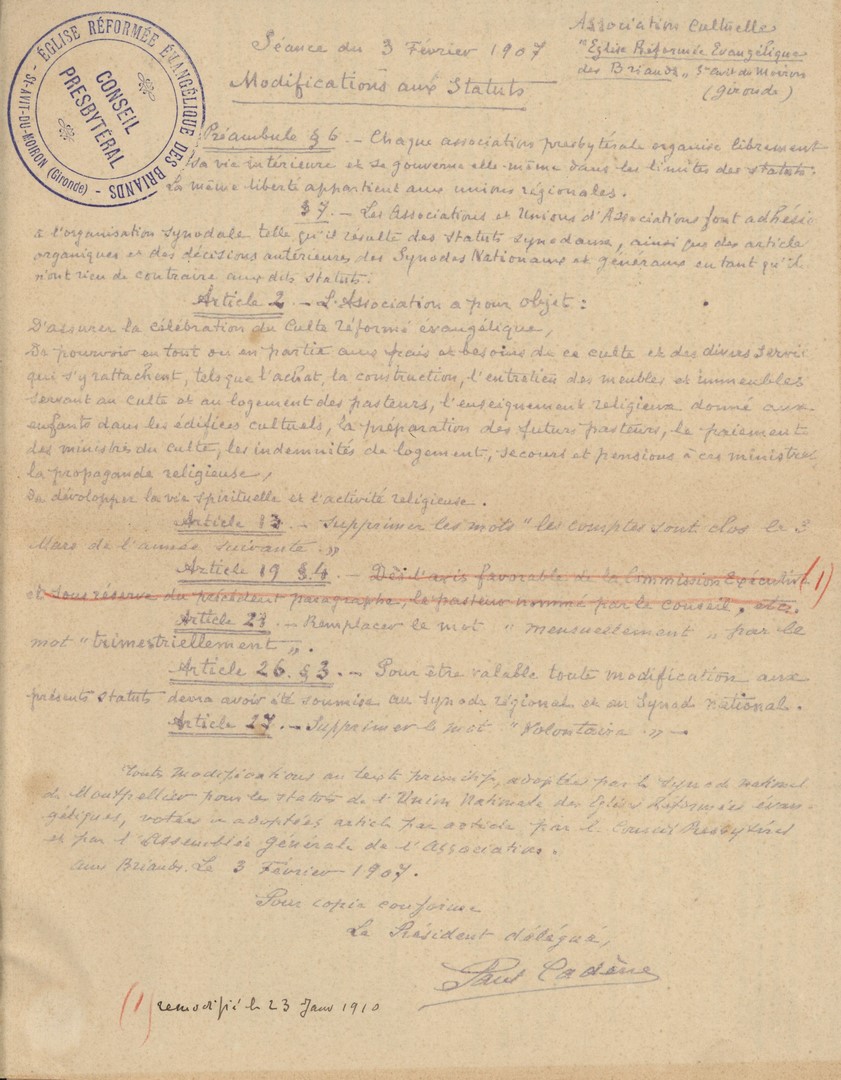 ÉGLISE RÉFORMÉE ÉVANGÉLIQUE DES BRIANDS
ST-AVIT-DU-MOIRON (Gironde)
CONSEIL
PRESBYTÉRAL
Séance du 3 Février 1907
Modifications aux Statuts
Association Cultuelle
"Eglise Réformée Evangélique
des Briands" St Avit du Moiron
(Gironde)
Préambule § 6. - Chaque association presbytérale organise librement
sa vie intérieure et se gouverne elle-même dans les limites des statuts.
La même liberté appartient aux unions régionales.
§ 7. - Les Associations et Unions d'Associations font adhésio
à l'organisation synodale telle qu'il résulte des statuts synodaux, ainsi que des article
organiques et des décisions antérieures des Synodes Nationaux et généraux en tant qu'il
n'ont rien de contraire aux dits statuts.
Article 2 - L'Association a pour objet :
D'assurer la célébration du Culte réformé évangélique,
De pourvoir en tout ou en partie aux frais et besoins de ce culte et des divers servic
qui s'y rattachent, tels que l'achat, la construction, l'entretien des meubles et immeubles
servant au culte et au logement des pasteurs, l'enseignement religieux donné aux
enfants dans les édifices cultuels, la préparation des futurs pasteurs, le paiement
des ministres du culte, les indemnités de logement, secours et pensions à ces ministres
la propagande religieuse,
De développer la vie spirituelle et l'activité religieuse.
Article 13. - Supprimer les mots "les comptes sont clos le 3
Mars de l'année suivante."
Article 19 § 4. - Dès l'avis favorable de la Commission Exécutive (1)
et sous réserve du précédent paragraphe, le pasteur nommé par le conseil, etc.
Article 23. - Remplacer le mot "mensuellement" par le
mot "trimestriellement".
Article 26. § 3. - Pour être valable toute modification aux
présents statuts devra avoir été soumise au Synode régional et au Synod national.
Article 27. - Supprimer le mot "Volontaire". -
Toutes modifications au texte primitif, adoptées par le Synode national
de Montpellier pour les statuts de l'Union Nationale des Eglises Réformées évan-
géliques, votées et adoptées article par article par le Conseil Presbytéral
et par l'Assemblée générale de l'Association.
aux Briands. Le 3 Février 1907.
Pour copie conforme
Le Président délégué,
Paul Cadène
(1) remodifié le 23 Janv 1910